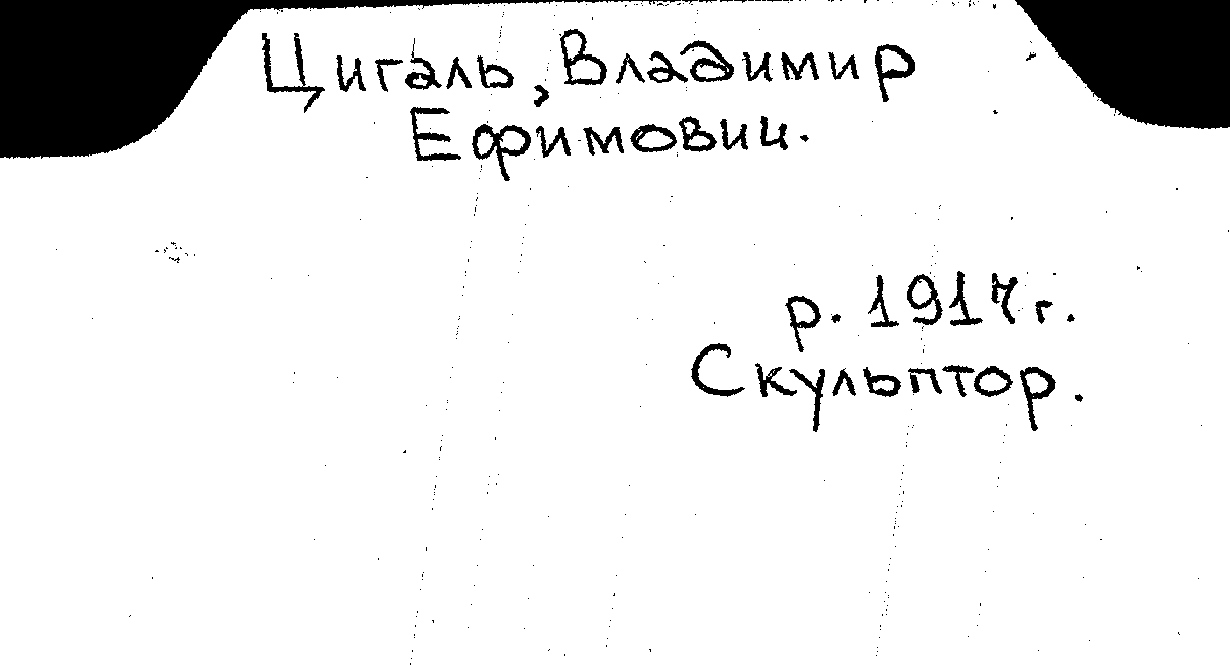 Цигаль, Владимир
Ефимович.
р. 1917 г.
Скульптор.